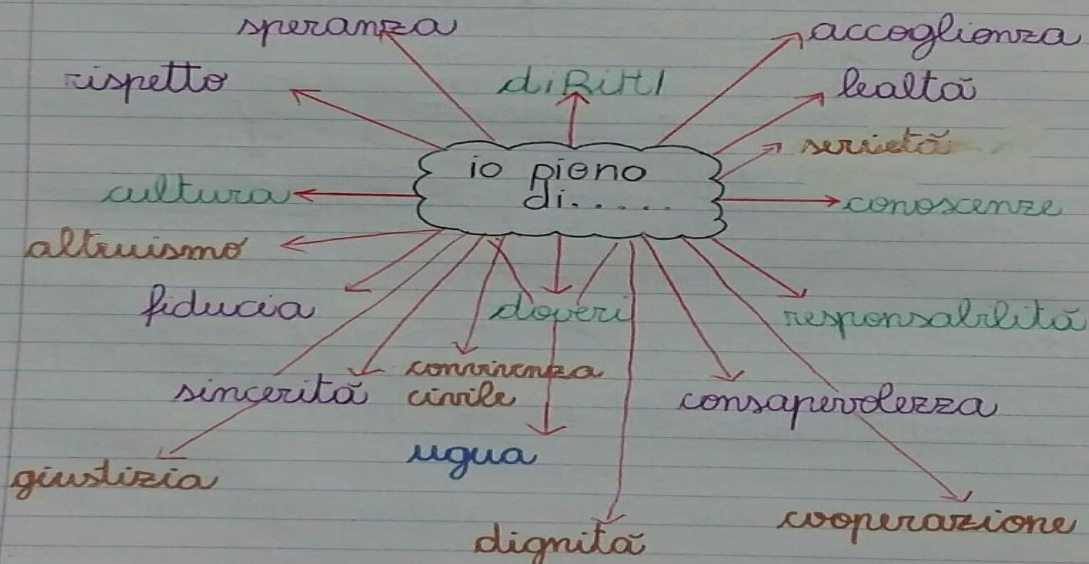 speranza
accoglienza
rispetto
diRitti
lealtà
serietà
io pieno
di.....
cultura
conoscenze
altruismo
fiducia
doveri
responsabilità
convivenza
civile
sincerità
consapevolezza
ugua
giustizia
cooperazione
dignità